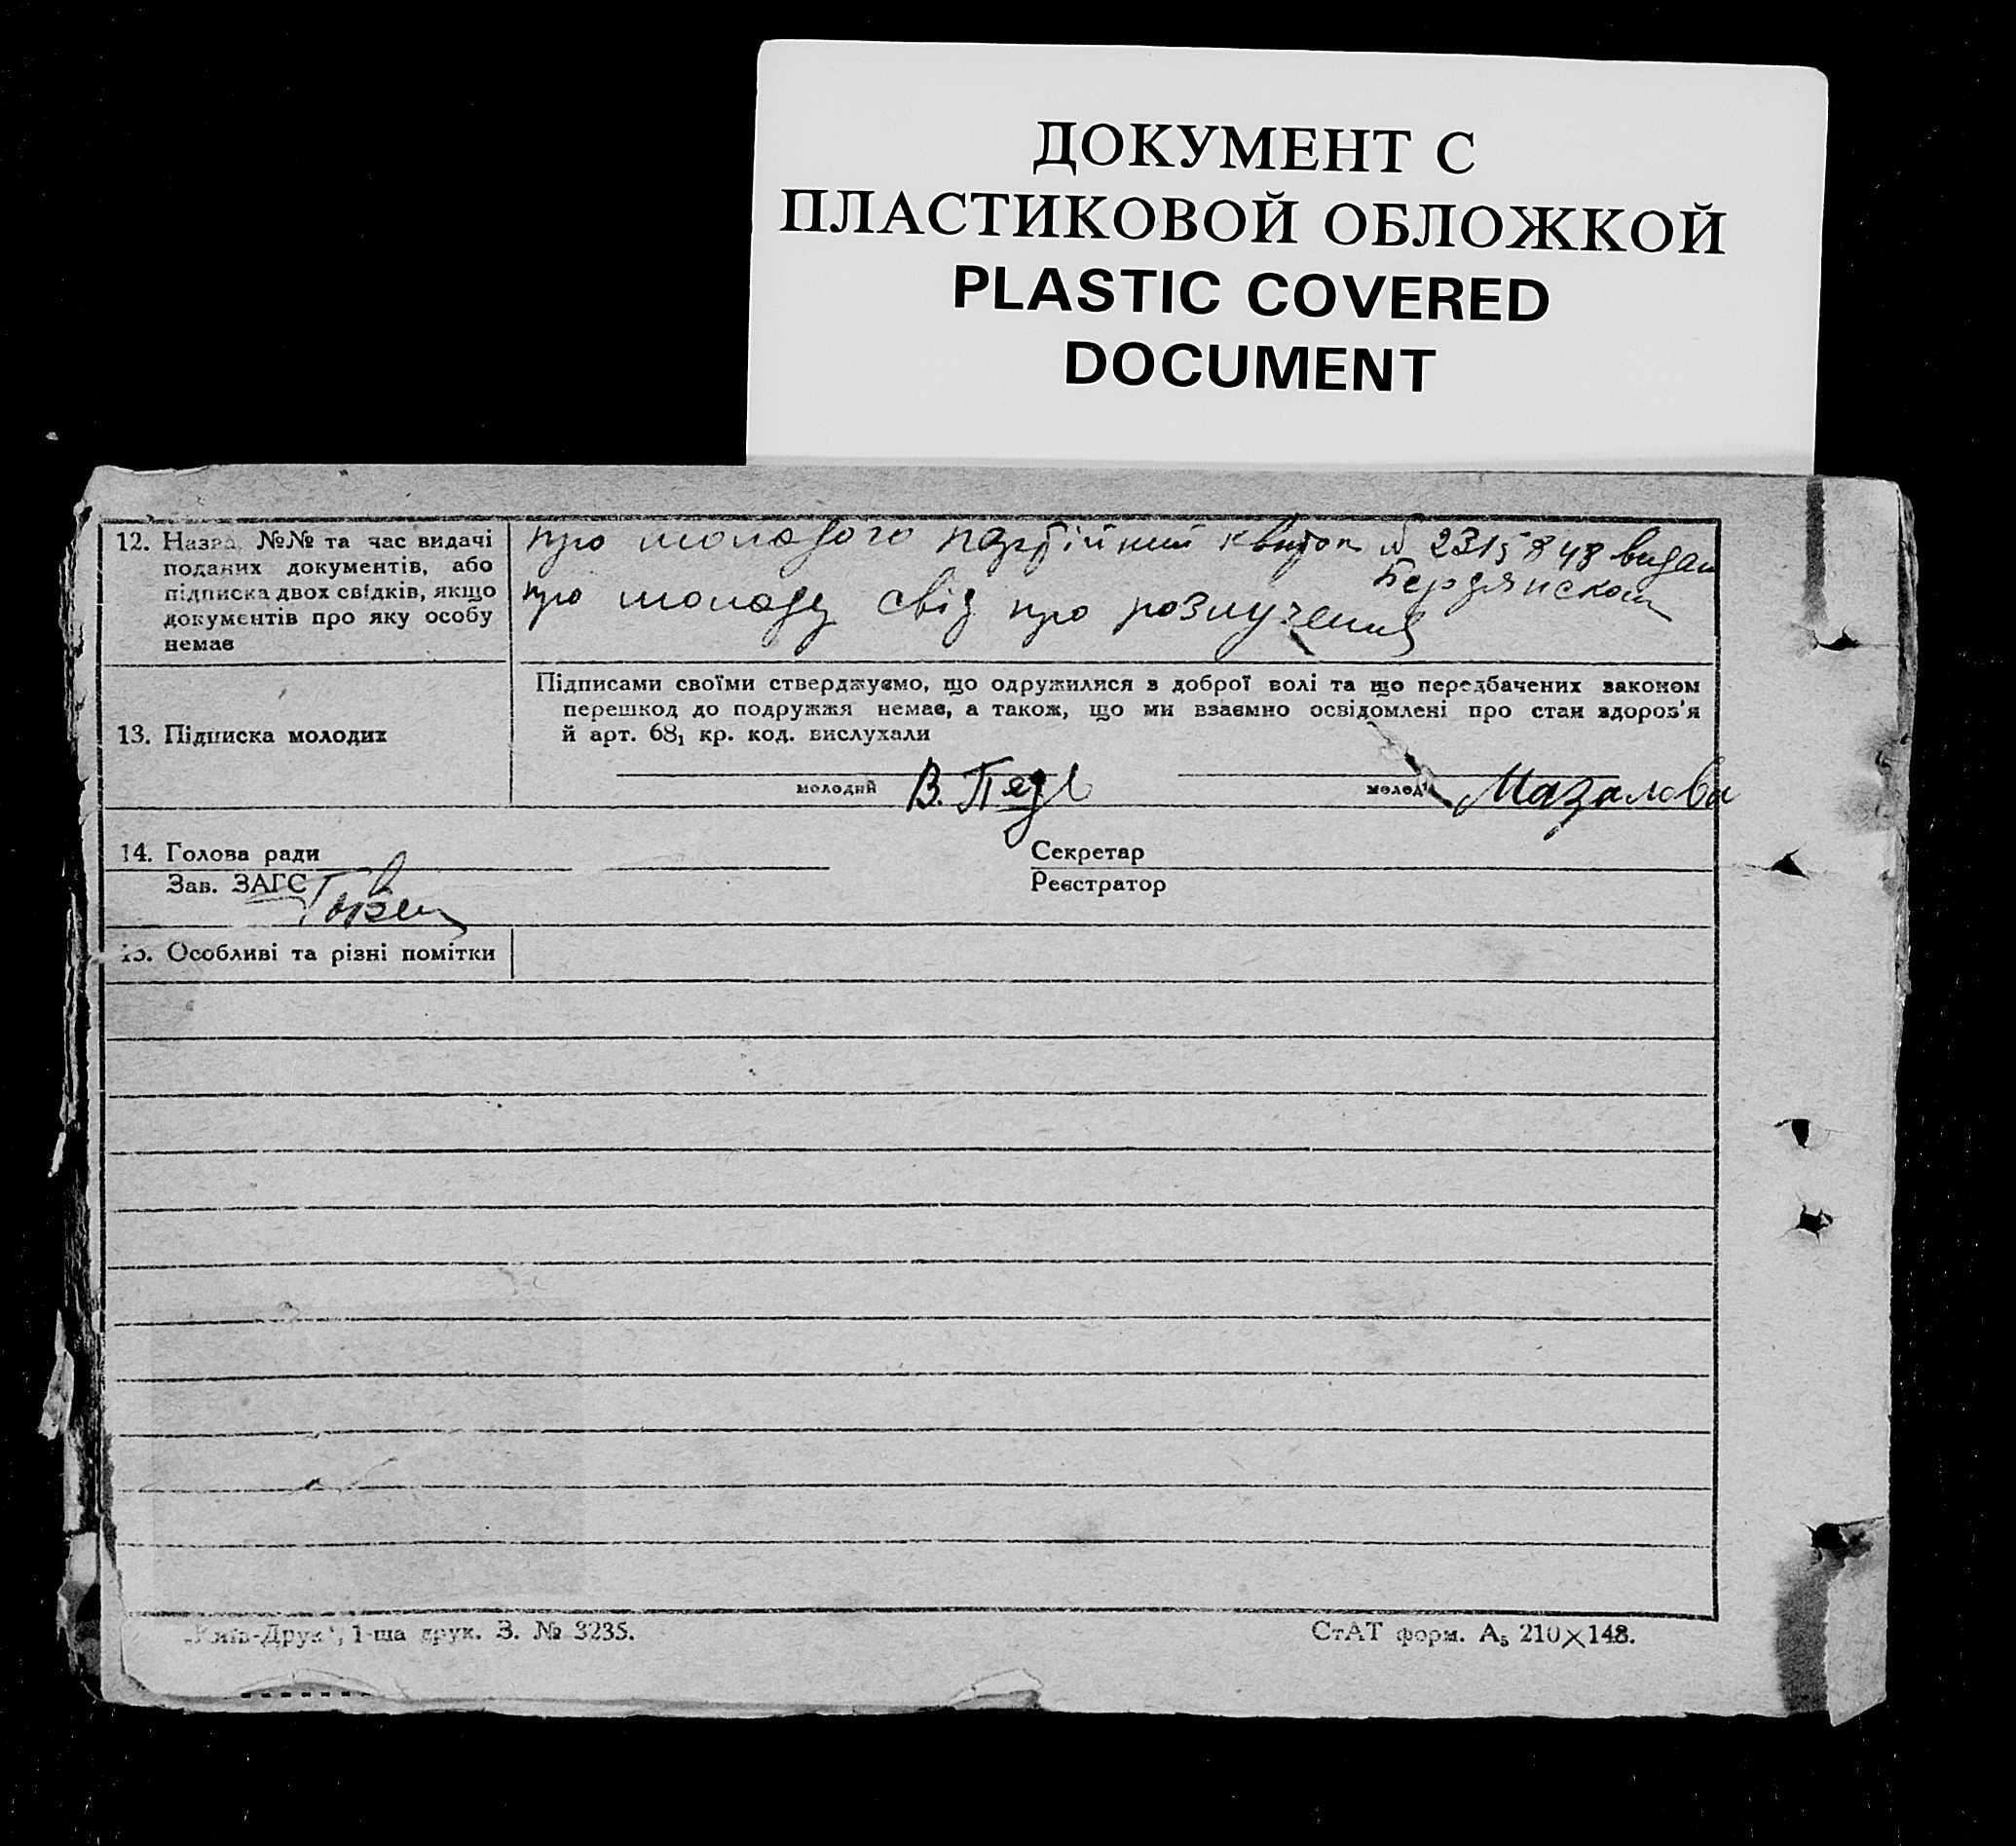 ДОКУМЕНТ С
ПЛАСТИКОВОЙ ОБЛОЖКОЙ
PLASTIC COVERED
DOCUMENT
12. Назва, №№ та час видачі
поданих документів, або
підписка двох свідків, якщо
документів про яку особу
немає
про молодого партійний квиток № 2315848 видан
Бердянском
про молоду свід про розлучення
13. Підписка молодих
Підписами своїми стверджуємо, що одружилися з доброї волі та що передбачених законом
перешкод до подружжя немає, а також, що ми взаємно освідомлені про стан здоров'я
й арт. 68₁ кр. код. вислухали
молодий В.
молода Мазалова
14. Голова ради
Секретар
Зав. ЗАГС
Реєстратор
15. Особливі та різні помітки
„Київ-Друк", 1-ша друк. З. № 3235.
СтАТ форм. А₅ 210×148.